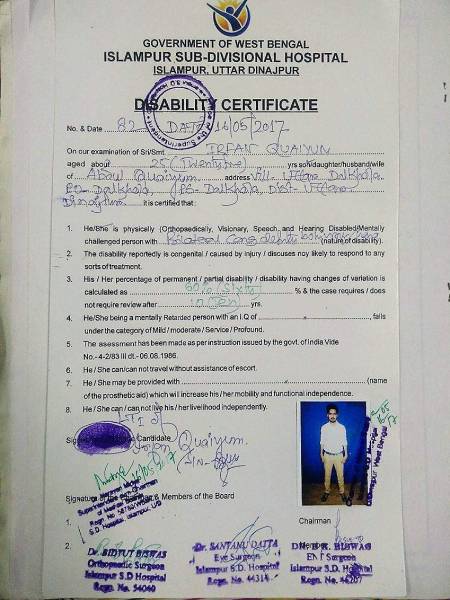 GOVERNMENT OF WEST BENGAL
ISLAMPUR SUB-DIVISIONAL HOSPITAL
ISLAMPUR, UTTAR DINAJPUR
DISABILITY CERTIFICATE
No. & Date 82 DATE 16/05/2017
On our examination of Sri/Smt. IRFAN QUAIYUM
aged about 25 (Twentyfive) yrs son/daughter/husband/wife
of Abdul Quaiyum address Vill- Uttar Dalkhola
PO- Dalkhola, PS- Dalkhola, Dist- Uttar
Dinajpur it is certified that :
1. He/She is physically (Orthopaedically, Visionary, Speech, and Hearing Disabled/Mentally
challenged person with Bilateral (nature of disability).
2. The disability reportedly is congenital / caused by injury / discuses noy likely to respond to any
sorts of treatment.
3. His / Her percentage of permanent / partial disability / disability having changes of variation is
calculated as 60% (Sixty) % & the case requires / does
not require review after 10 (Ten) yrs.
4. He/She being a mentally Retarded person with an I.Q of , falls
under the category of Mild / moderate / Service / Profound.
5. The assessment has been made as per instruction issued by the govt. of India Vide
No.-4-2/83 III dt.-06.08.1986.
6. He / She can/can not travel without assistance of escort.
7. He / She may be provided with (name
of the prosthetic aid) which will increase his / her mobility and functional independence.
8. He / She can / can not live his / her livelihood independently.
LTI of
Candidate
Irfan Quaiyum.
16/05/2017
Signature of the Chairman & Members of the Board
S.D. Hospital, Islampur, U/D
1.
Chairman
2.
Dr. BIDYUT BISWAS
Orthopaedic Surgeon
Islampur S.D Hospital
Regn. No. 54040
Dr. SANTANU DATTA
Eye Surgeon
Islampur S.D. Hospital
Regn. No. 44314
BISWAS
ENT Surgeon
Islampur S.D Hospital
Regn. No. 46207